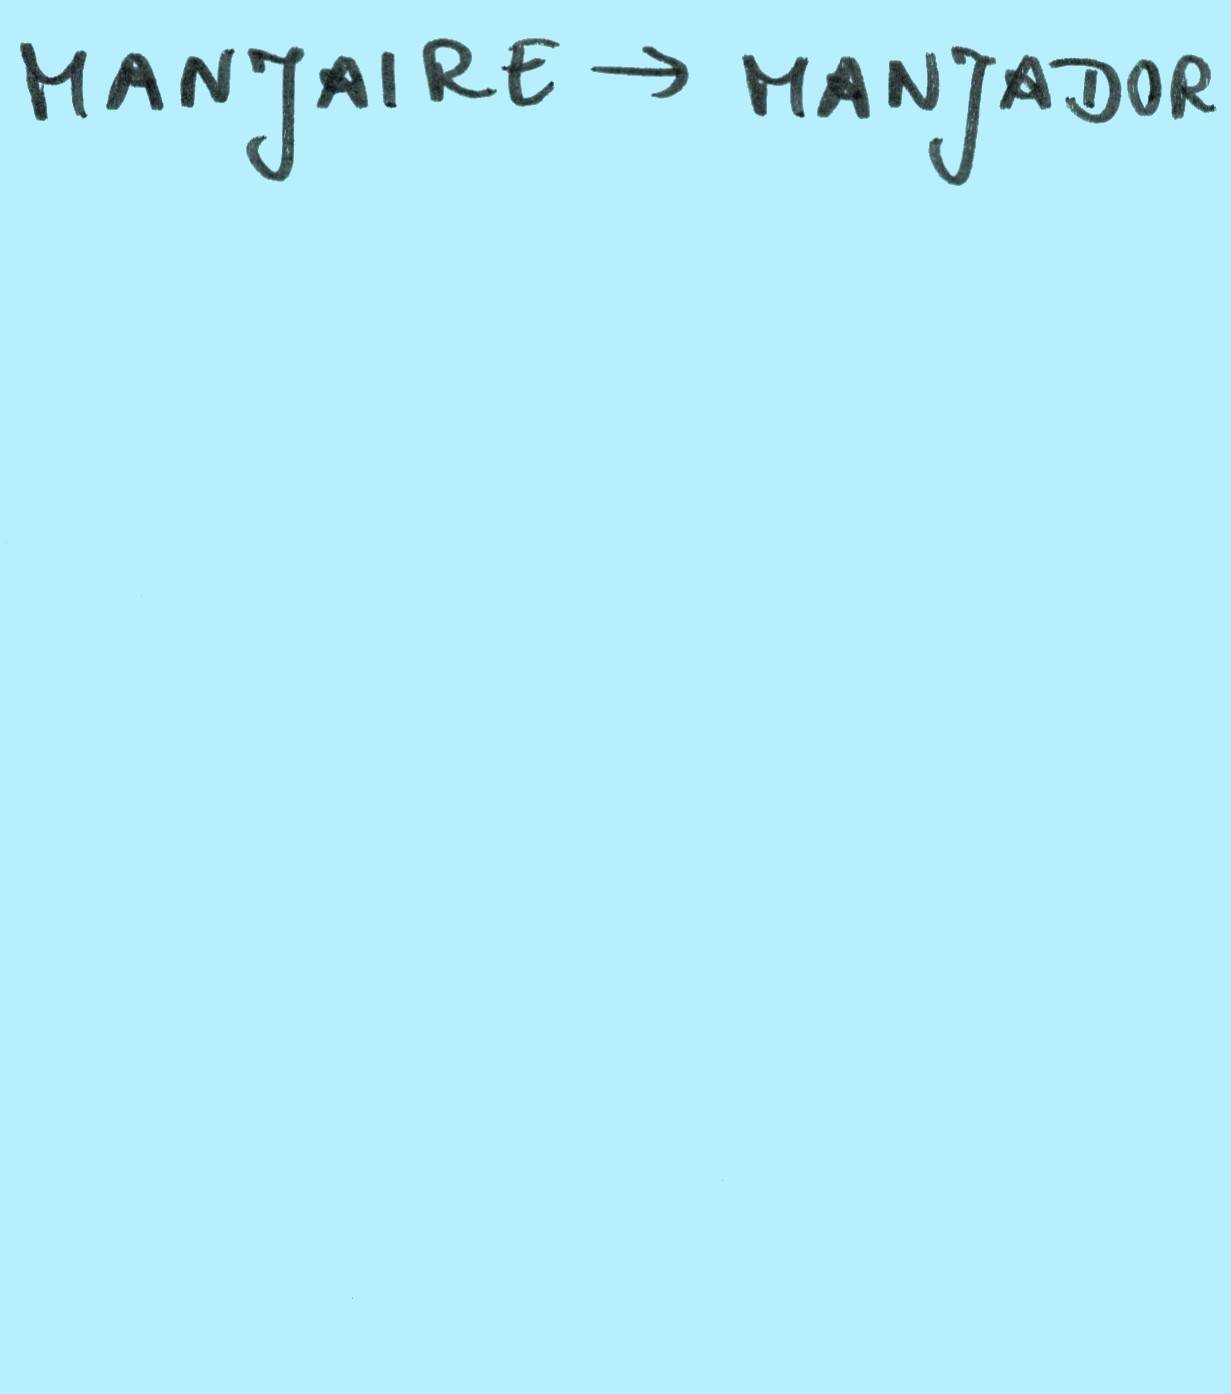 MANJAIRE → MANJADOR